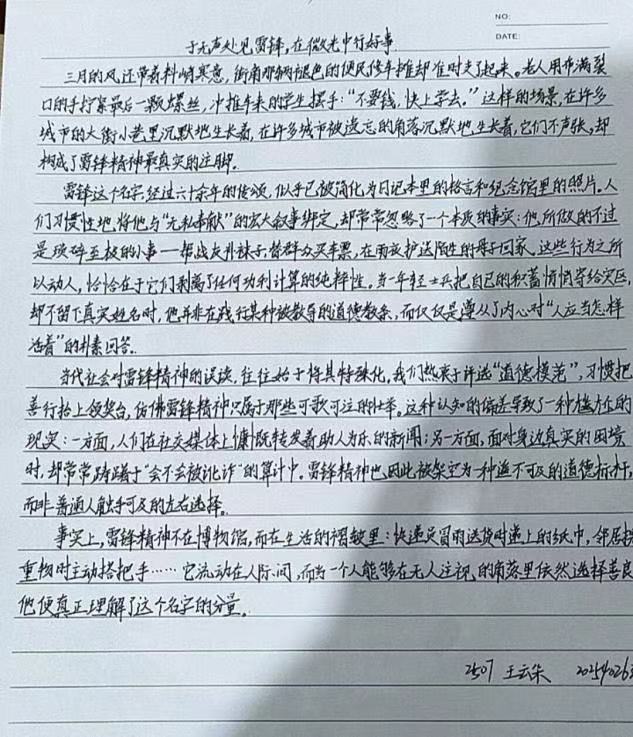 NO:
DATE:
于无声处见雷锋,在微光中行好事
三月的风还带着料峭寒意,街角那辆褪色的便民修车摊却准时支了起来。老人用布满裂
口的手拧紧最后一颗螺丝,冲推车来的学生摆手:“不要钱,快上学去。”这样的场景,在许多
城市的大街小巷里沉默地生长着,在许多城市被遗忘的角落沉默地生长着,它们不声张,却
构成了雷锋精神最真实的注脚.
雷锋这个名字,经过六十余年的传颂,似乎已被简化为日记本里的格言和纪念馆里的照片。人
们习惯性地将他与“无私奉献”的宏大叙事绑定,却常常忽略了一个本质的事实:他所做的不过
是琐碎至极的小事—帮战友补袜子,替群众买车票,在雨夜护送陌生的母子回家,这些行为之所
以动人,恰恰在于它们剥离了任何功利计算的纯粹性。当一年轻士兵把自己的积蓄悄悄寄给灾区,
却不留下真实姓名时,他并非在践行某种被教导的道德教条,而仅仅是遵从了内心对“人应当怎样
活着”的朴素回答.
当代社会对雷锋精神的误读,往往始于将其特殊化,我们热衷于评选“道德模范”,习惯把
善行抬上领奖台,仿佛雷锋精神只属于那些可歌可泣的壮举。这种认知的偏差导致了一种尴尬的
现实:一方面,人们在社交媒体上慷慨转发着助人为乐的新闻;另一方面,面对身边真实的困境
时,却常常踌躇于“会不会被讹诈”的算计中。雷锋精神也因此被架空为一种遥不可及的道德标杆,
而非普通人触手可及的左右选择.
事实上,雷锋精神不在博物馆,而在生活的褶皱里:快递员冒雨送货时递上的纸巾,邻居扶
重物时主动搭把手……它流动在人际间,而当一个人能够在无人注视的角落里依然选择善良
他便真正理解了这个名字的分量.
2507 王云朱